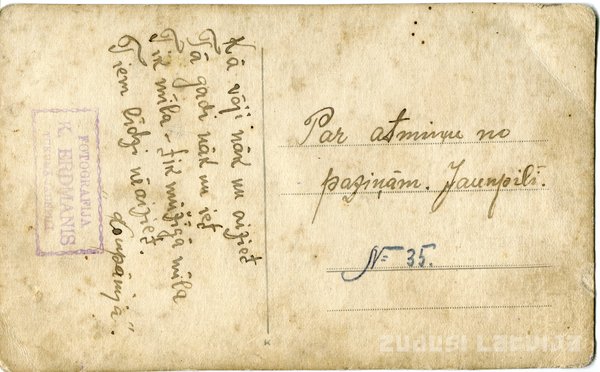 Kā vēji nāk nu aiziet
Tā gadi nāk nu iet
Tik mīla – tik mūžīgā mīla
Tiem līdzi neaiziet.
FOTOGRAFIJA
K. ERDMANIS
Par atmiņu no
paziņām. Jaunpilī.
№ 35.
ZUDUSI LATVIJA